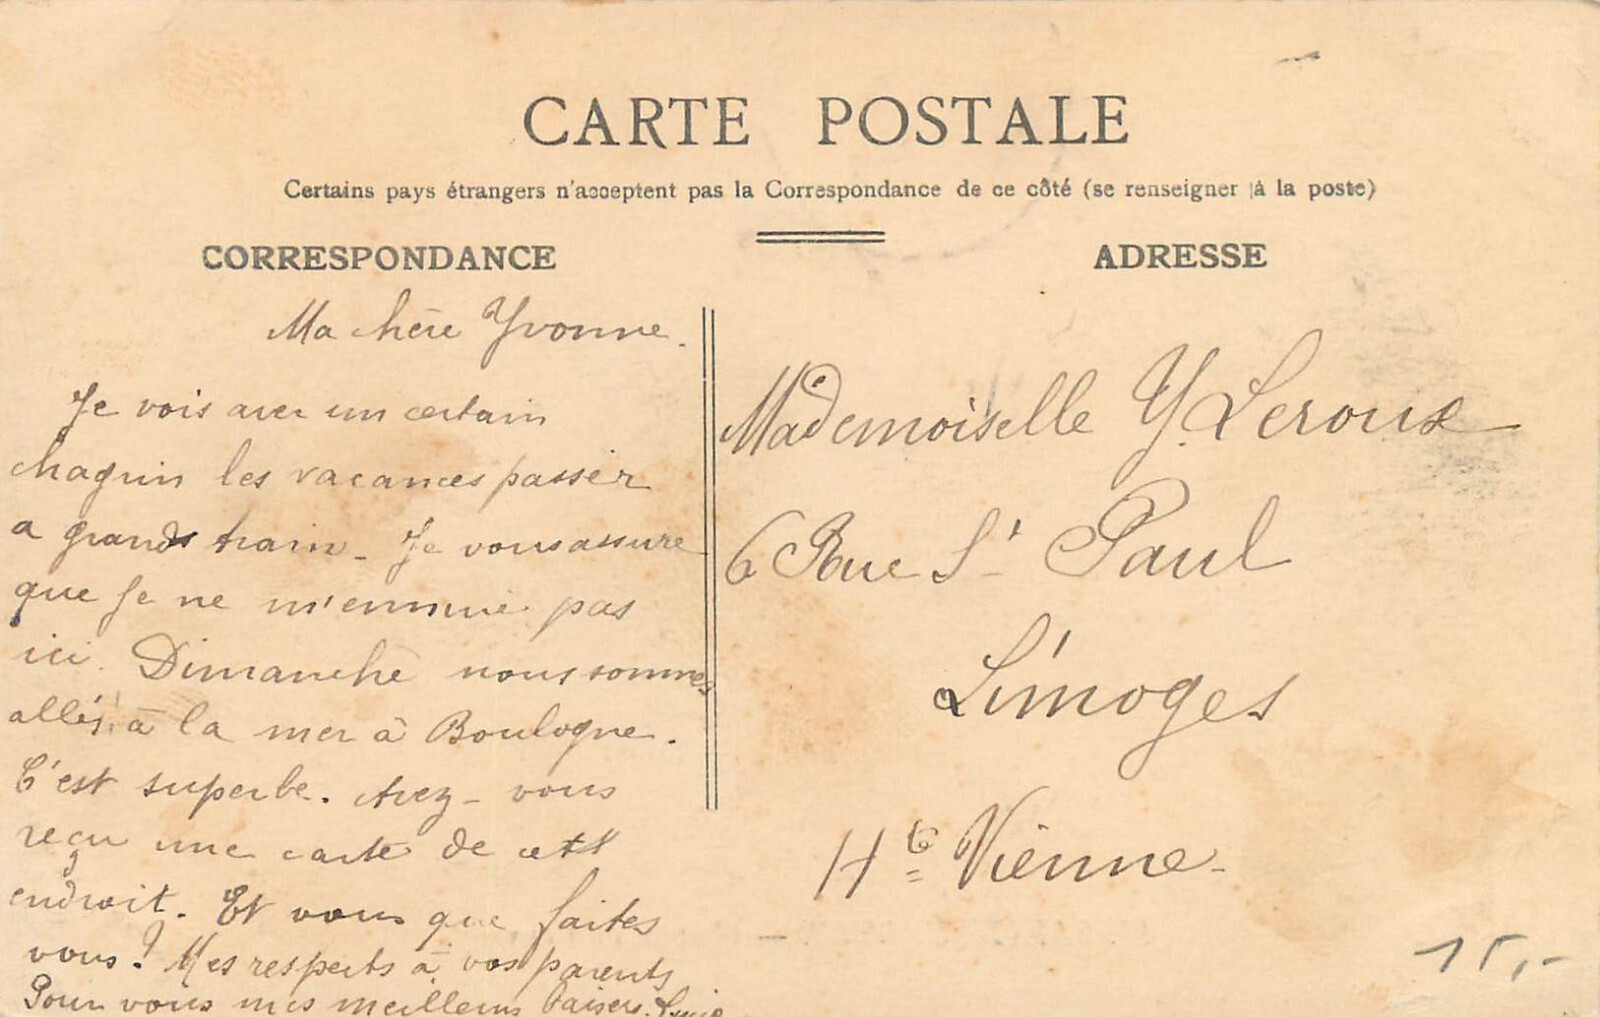 CARTE POSTALE
Certains pays étrangers n'acceptent pas la Correspondance de ce côté (se renseigner à la poste)
CORRESPONDANCE
Ma chère Yvonne.
Je vois avec un certain
chagrin les vacances passer
a grands train - Je vous assure
que je ne m'ennuie pas
ici. Dimanche nous sommes
allés à la mer à Boulogne.
C'est superbe. Avez-vous
reçu une carte de cett
endroit. Et vous que faites
vous? Mes respects à vos parents
Pour vous mes meilleurs baisers.
ADRESSE
Mademoiselle Y. Leroux
6 Rue St Paul
Limoges
Hte Vienne
15,-